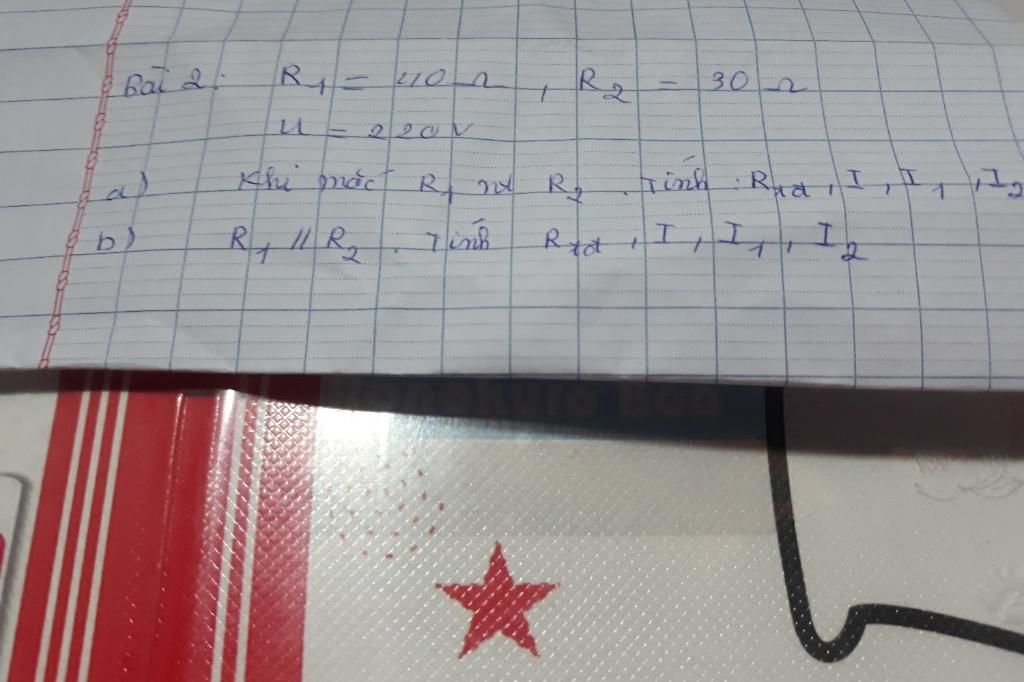 Bài 2: R1 = 40 Ω, R2 = 30 Ω
U = 220V
a) Khi mắc R1 nt R2. Tính: Rtđ, I, I1, I2
b) R1 // R2. Tính Rtđ, I, I1, I2